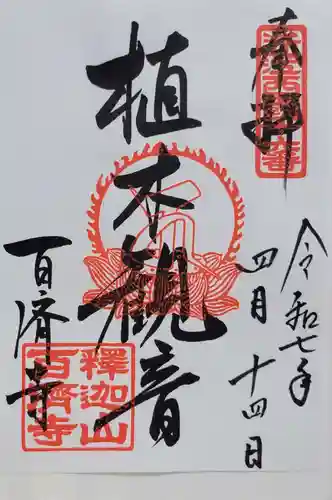 奉拝
令和七年
四月
十四日
植木観音
百済寺
釋迦山
百濟寺